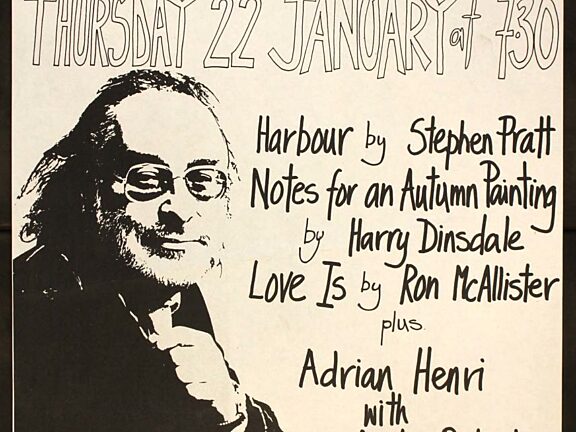 THURSDAY 22 JANUARY at 7.30
Harbour by Stephen Pratt
Notes for an Autumn Painting
by Harry Dinsdale
Love Is by Ron McAllister
plus
Adrian Henri
with